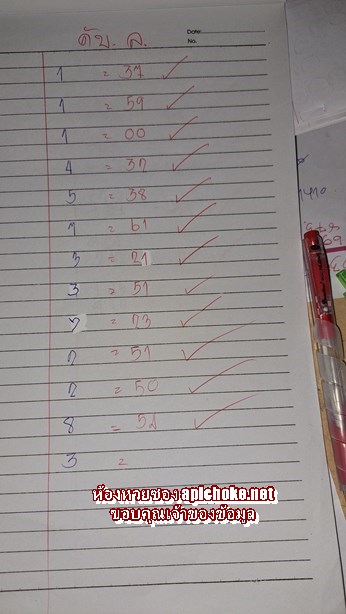 ดับ. ล.
Date
No.
1 = 37 ✓
1 = 59 ✓
1 = 00 ✓
4 = 37 ✓
5 = 38 ✓
1 = 61 ✓
3 = 21 ✓
3 = 51 ✓
7 = 73 ✓
7 = 51 ✓
7 = 50 ✓
8 = 54 ✓
3 =
ห้องหวยซอง apichoke.net
ขอบคุณเจ้าของข้อมูล